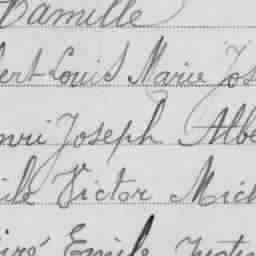 Camille
bert Louis Marie Jos
enri Joseph Albe
ile Victor Mich
iré Emile Justin